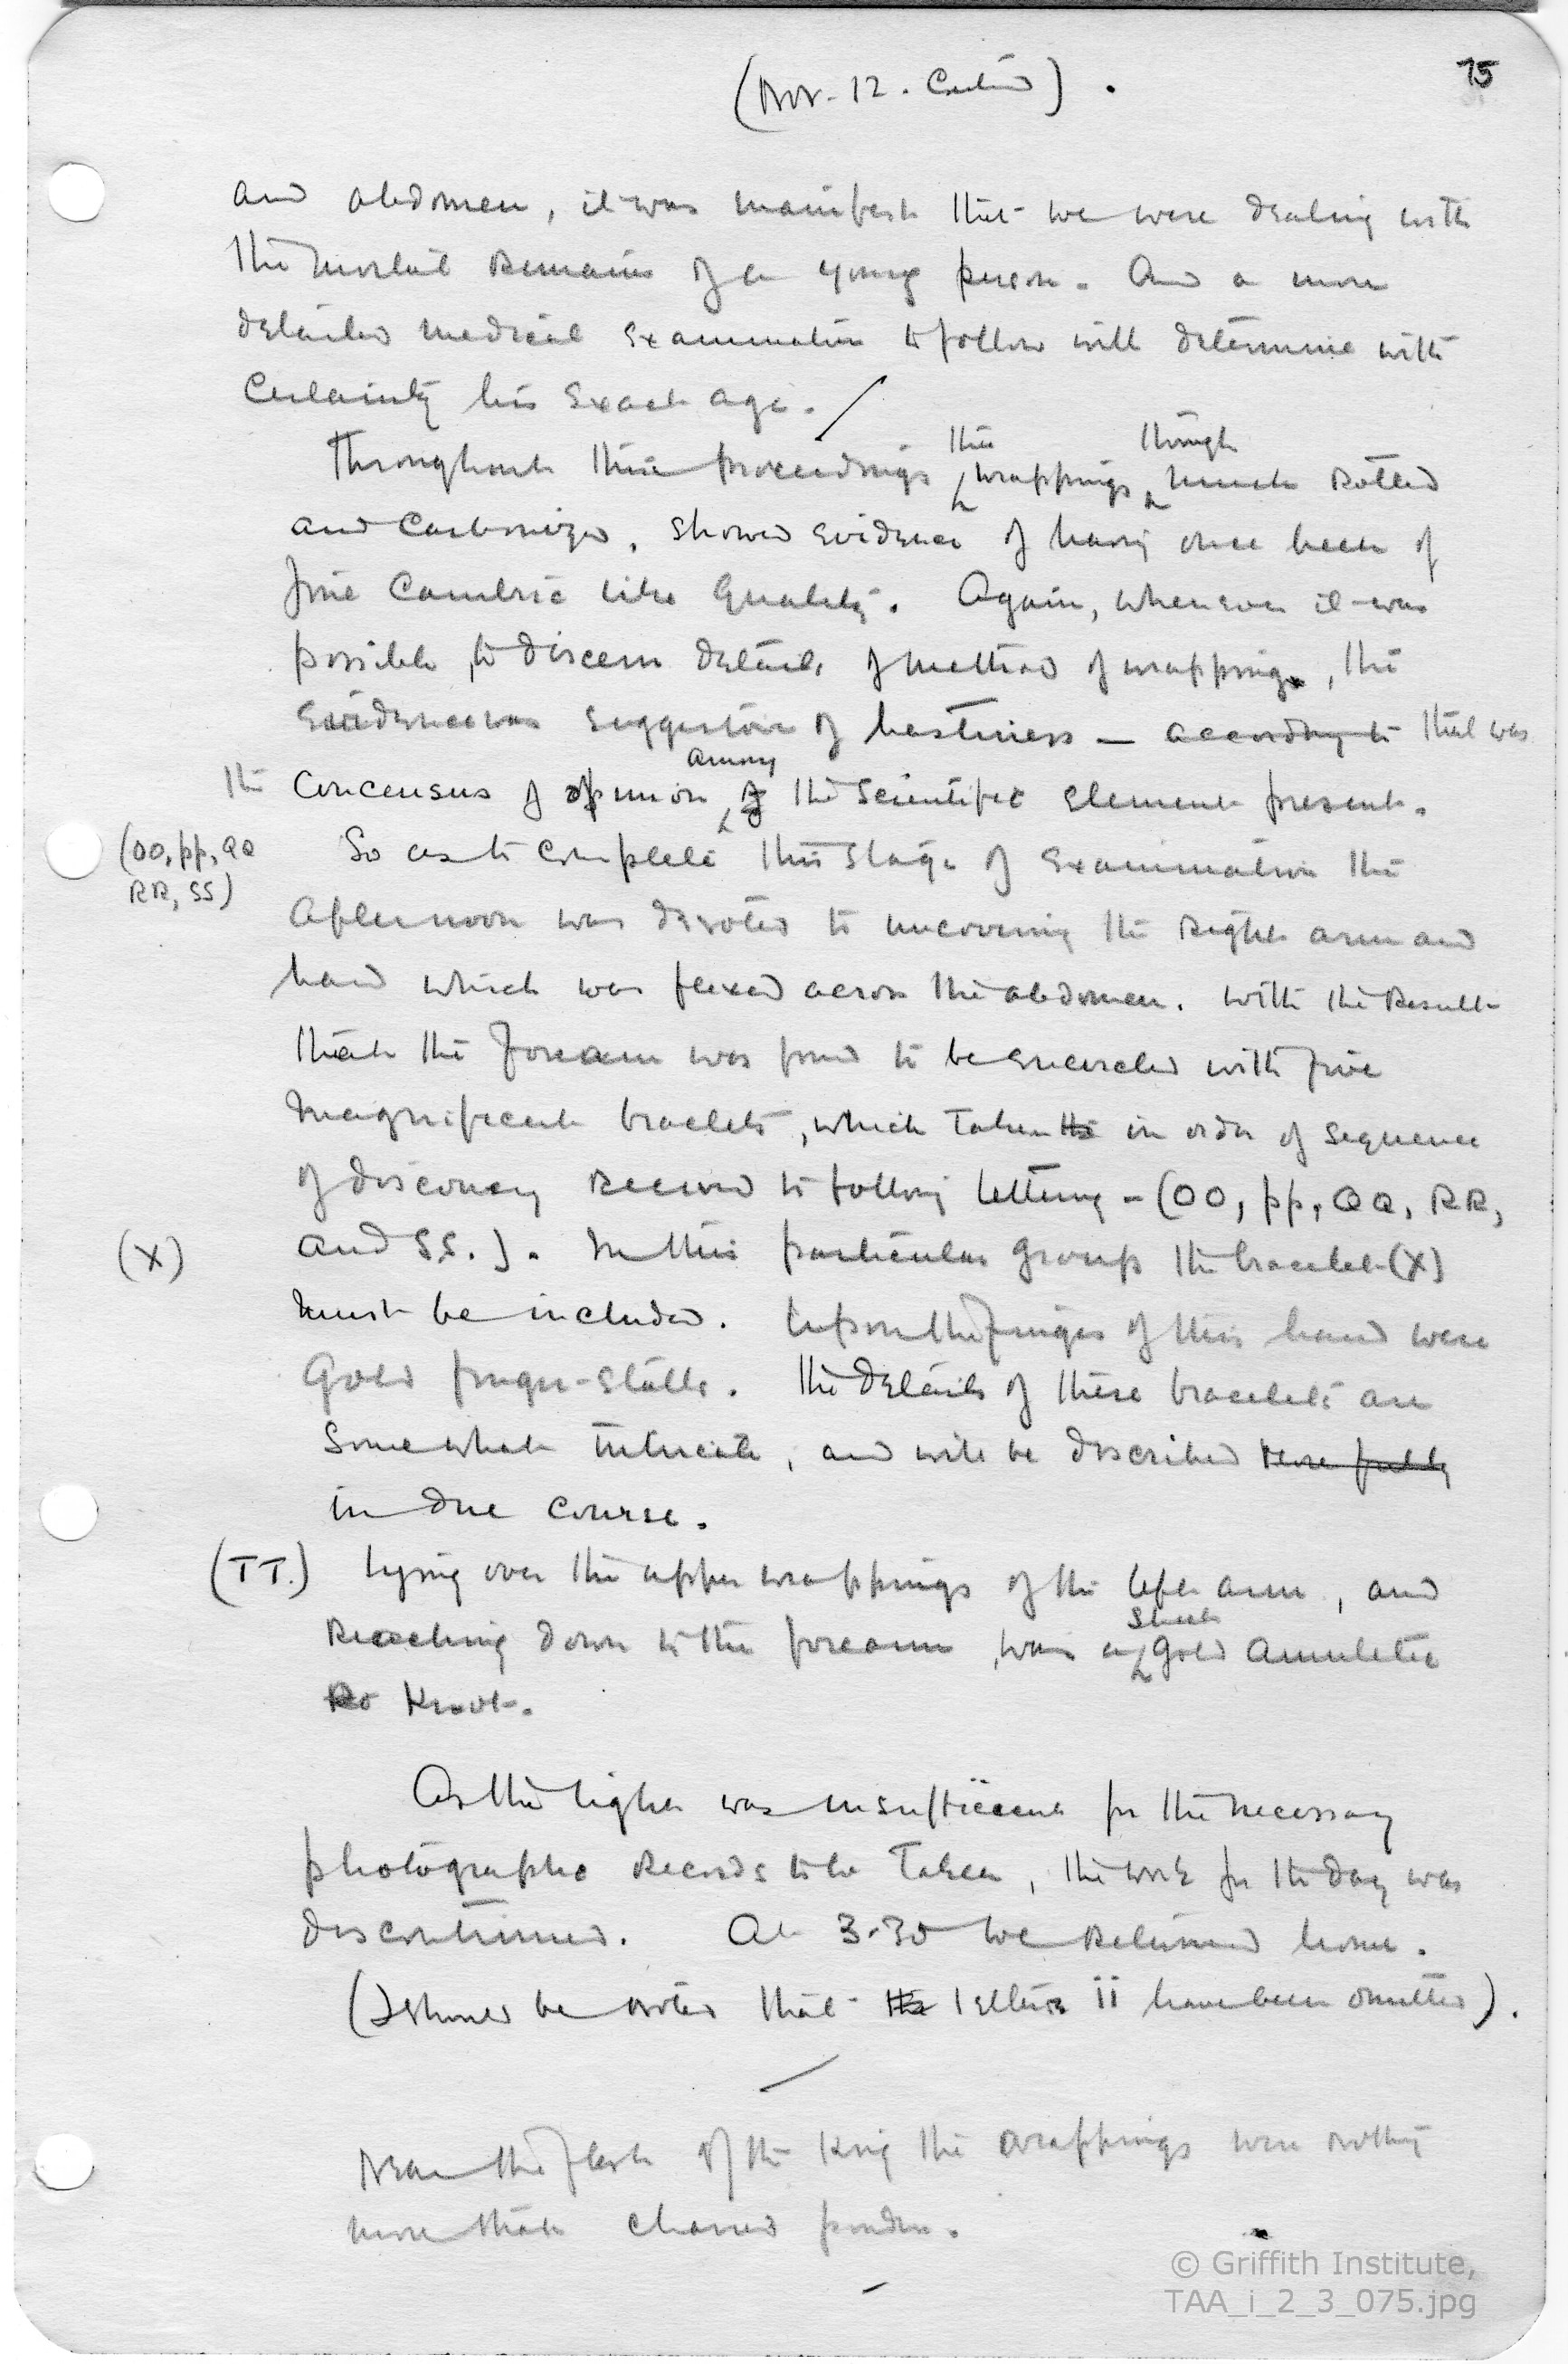 75
(Nov. 12. Contind) .
and abdomen, it was manifest that we were dealing with
the mortal remains of a young person. And a more
detailed medical examination to follow will determine with
certainty his exact age. /
Throughout these proceedings the wrappings though much rotted
and carbonized, showed evidence of having once been of
fine cambric like quality. Again, whenever it was
possible to discern details of method of wrapping, the
evidence was suggestive of hastiness — according to that was
the concensus of opinion among of the scientific element present.
(OO, PP, QQ
RR, SS)
So as to complete this stage of examination the
afternoon was devoted to uncovering the right arm and
hand which was flexed across the abdomen. With the result
that the forearm was found to be encircled with five
magnificent bracelets, which taken the in order of sequence
of discovery received the following lettering - (OO, PP, QQ, RR,
(X)
and SS.). In this particular group the bracelet (X)
must be included. Upon the fingers of this hand were
Gold finger-stalls. The details of these bracelets are
somewhat intricate, and will be described more fully
in due course.
(TT.) Lying over the upper wrappings of the left arm, and
reaching down to the forearm, was a sheet gold amuletic
Ro Knot.
As the light was insufficient for the necessary
photographic records to be taken, the work for the day was
discontinued. At 3.30 we returned home.
(It should be noted that the letters ii have been omitted).
Near the flesh of the King the wrappings were nothing
more than charred powder.
© Griffith Institute,
TAA_i_2_3_075.jpg